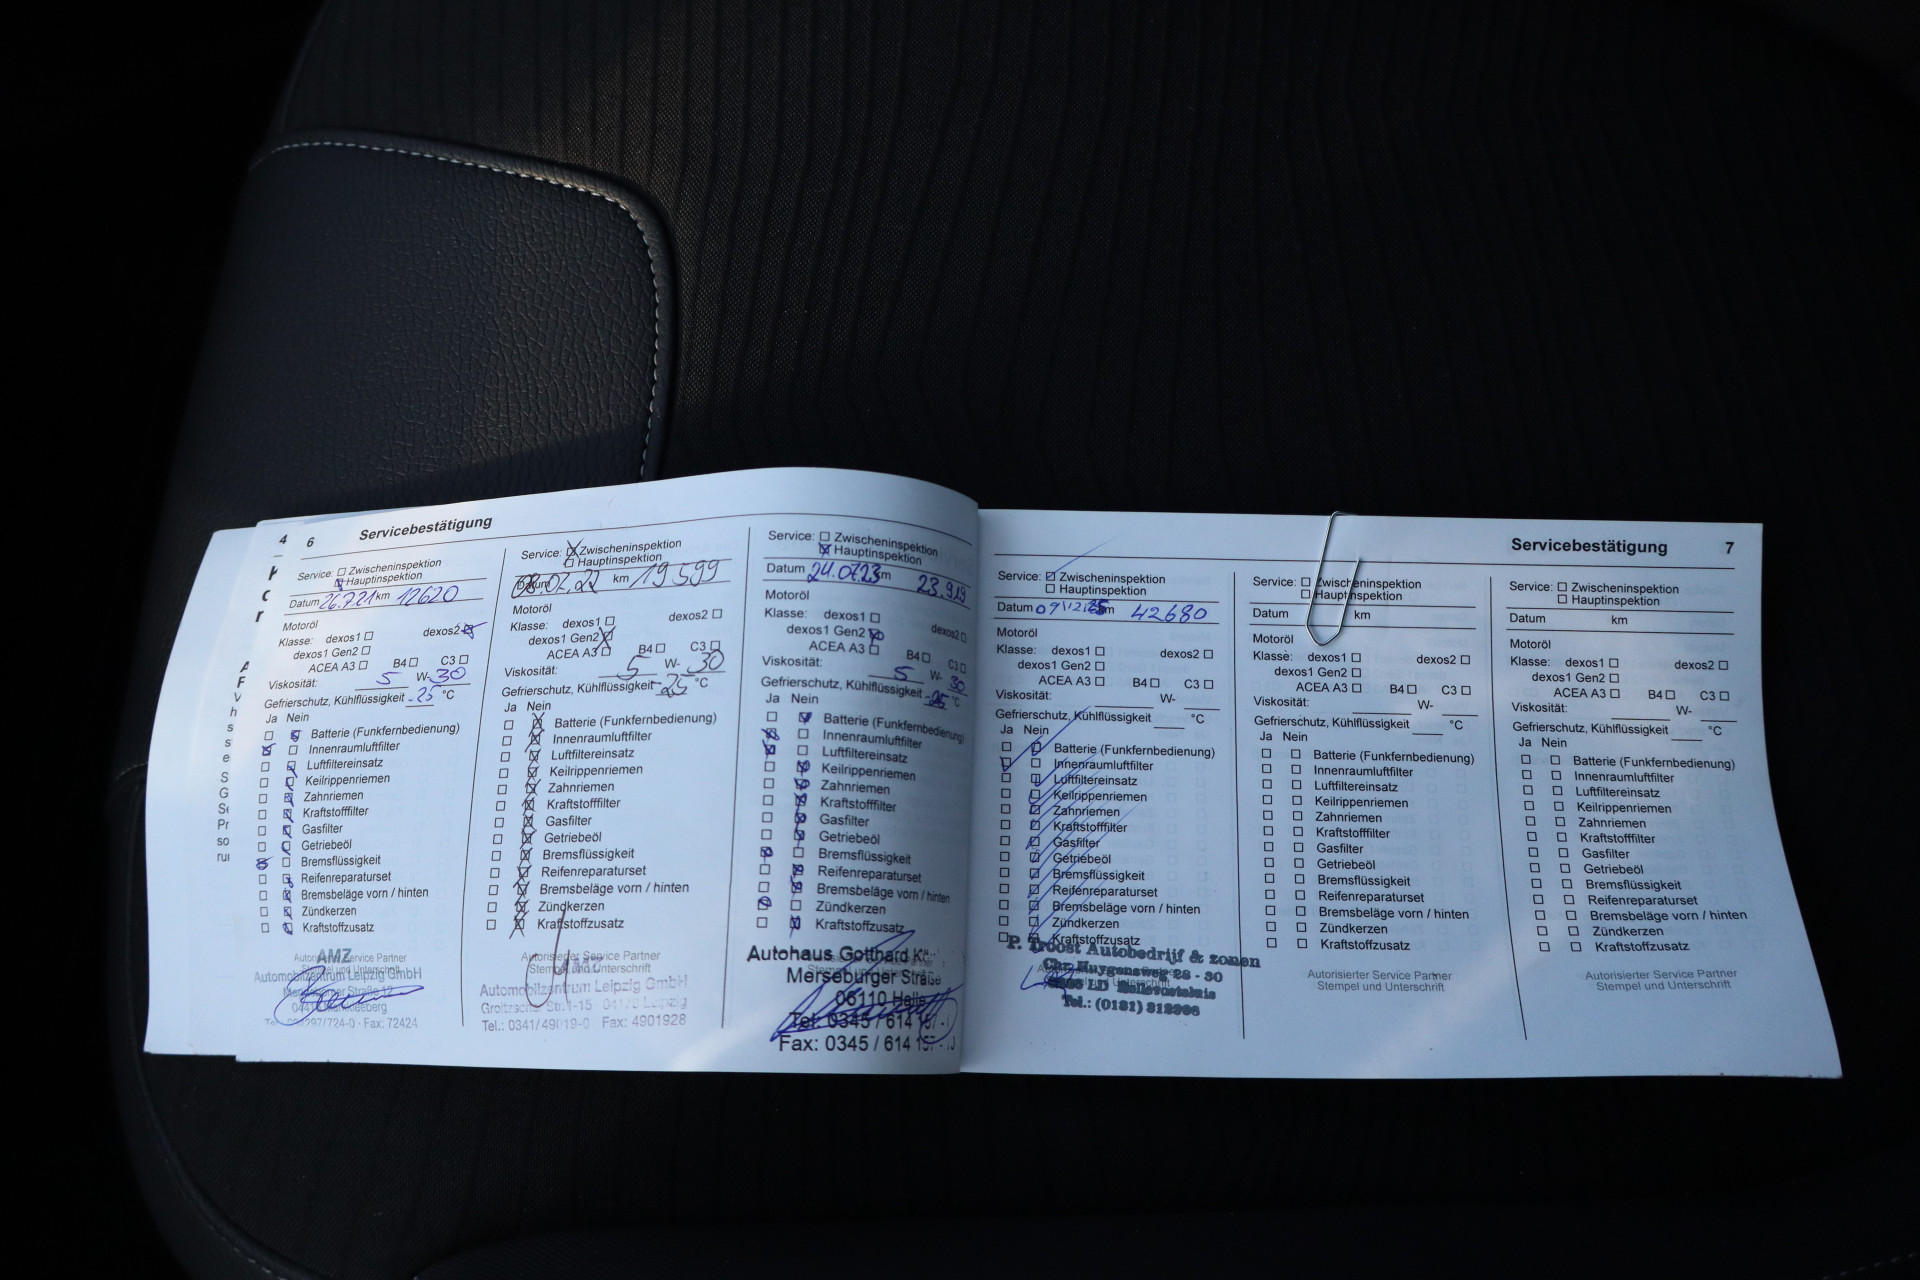 4
6 Servicebestätigung
Service: Zwischeninspektion
Hauptinspektion
Datum 26.7.21 km 12620
Motoröl
Klasse: dexos1 dexos2
dexos1 Gen2
ACEA A3 B4 C3
Viskosität: 5 W- 30
Gefrierschutz, Kühlflüssigkeit -25 °C
Ja Nein
Batterie (Funkfernbedienung)
Innenraumluftfilter
Luftfiltereinsatz
Keilrippenriemen
Zahnriemen
Kraftstofffilter
Gasfilter
Getriebeöl
Bremsflüssigkeit
Reifenreparaturset
Bremsbeläge vorn / hinten
Zündkerzen
Kraftstoffzusatz
AMZ
Autorisierter Service Partner
Stempel und Unterschrift
Automobilzentrum Leipzig GmbH
Service: Zwischeninspektion
Hauptinspektion
Datum 08.02.22 km 19599
Motoröl
Klasse: dexos1 dexos2
dexos1 Gen2
ACEA A3 B4 C3
Viskosität: 5 W- 30
Gefrierschutz, Kühlflüssigkeit -25 °C
Ja Nein
Batterie (Funkfernbedienung)
Innenraumluftfilter
Luftfiltereinsatz
Keilrippenriemen
Zahnriemen
Kraftstofffilter
Gasfilter
Getriebeöl
Bremsflüssigkeit
Reifenreparaturset
Bremsbeläge vorn / hinten
Zündkerzen
Kraftstoffzusatz
Autorisierter Service Partner
Stempel und Unterschrift
Automobilzentrum Leipzig GmbH
Leipzig
Fax: 4901928
Service: Zwischeninspektion
Hauptinspektion
Datum 24.07.23 km 23.919
Motoröl
Klasse: dexos1
dexos1 Gen2 dexos2
ACEA A3 B4 C3
Viskosität: 5 W- 30
Gefrierschutz, Kühlflüssigkeit -25 °C
Ja Nein
Batterie (Funkfernbedienung)
Innenraumluftfilter
Luftfiltereinsatz
Keilrippenriemen
Zahnriemen
Kraftstofffilter
Gasfilter
Getriebeöl
Bremsflüssigkeit
Reifenreparaturset
Bremsbeläge vorn / hinten
Zündkerzen
Kraftstoffzusatz
Autohaus Gotthard
Merseburger Straße
06110 Halle
Tel: 0345 / 614
Fax: 0345 / 614
Servicebestätigung 7
Service: Zwischeninspektion
Hauptinspektion
Datum km 42680
Motoröl
Klasse: dexos1 dexos2
dexos1 Gen2
ACEA A3 B4 C3
Viskosität: W-
Gefrierschutz, Kühlflüssigkeit °C
Ja Nein
Batterie (Funkfernbedienung)
Innenraumluftfilter
Luftfiltereinsatz
Keilrippenriemen
Zahnriemen
Kraftstofffilter
Gasfilter
Getriebeöl
Bremsflüssigkeit
Reifenreparaturset
Bremsbeläge vorn / hinten
Zündkerzen
Kraftstoffzusatz
P. Troost Autobedrijf & zonen
Chr. Huygensweg 28 - 30
Hellevoetsluis
Tel.: (0181)
Service: Zwischeninspektion
Hauptinspektion
Datum km
Motoröl
Klasse: dexos1 dexos2
dexos1 Gen2
ACEA A3 B4 C3
Viskosität: W-
Gefrierschutz, Kühlflüssigkeit °C
Ja Nein
Batterie (Funkfernbedienung)
Innenraumluftfilter
Luftfiltereinsatz
Keilrippenriemen
Zahnriemen
Kraftstofffilter
Gasfilter
Getriebeöl
Bremsflüssigkeit
Reifenreparaturset
Bremsbeläge vorn / hinten
Zündkerzen
Kraftstoffzusatz
Autorisierter Service Partner
Stempel und Unterschrift
Service: Zwischeninspektion
Hauptinspektion
Datum km
Motoröl
Klasse: dexos1 dexos2
dexos1 Gen2
ACEA A3 B4 C3
Viskosität: W-
Gefrierschutz, Kühlflüssigkeit °C
Ja Nein
Batterie (Funkfernbedienung)
Innenraumluftfilter
Luftfiltereinsatz
Keilrippenriemen
Zahnriemen
Kraftstofffilter
Gasfilter
Getriebeöl
Bremsflüssigkeit
Reifenreparaturset
Bremsbeläge vorn / hinten
Zündkerzen
Kraftstoffzusatz
Autorisierter Service Partner
Stempel und Unterschrift